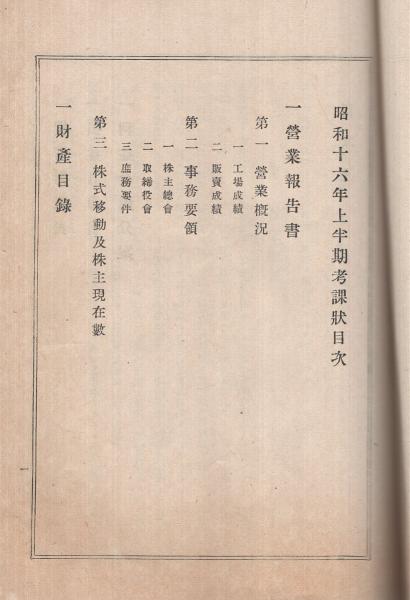 昭和十六年上半期考課狀目次
一 營業報告書
第一 營業概況
一 工場成績
二 販賣成績
第二 事務要領
一 株主總會
二 取締役會
三 庶務要件
第三 株式移動及株主現在數
一 財產目錄
一